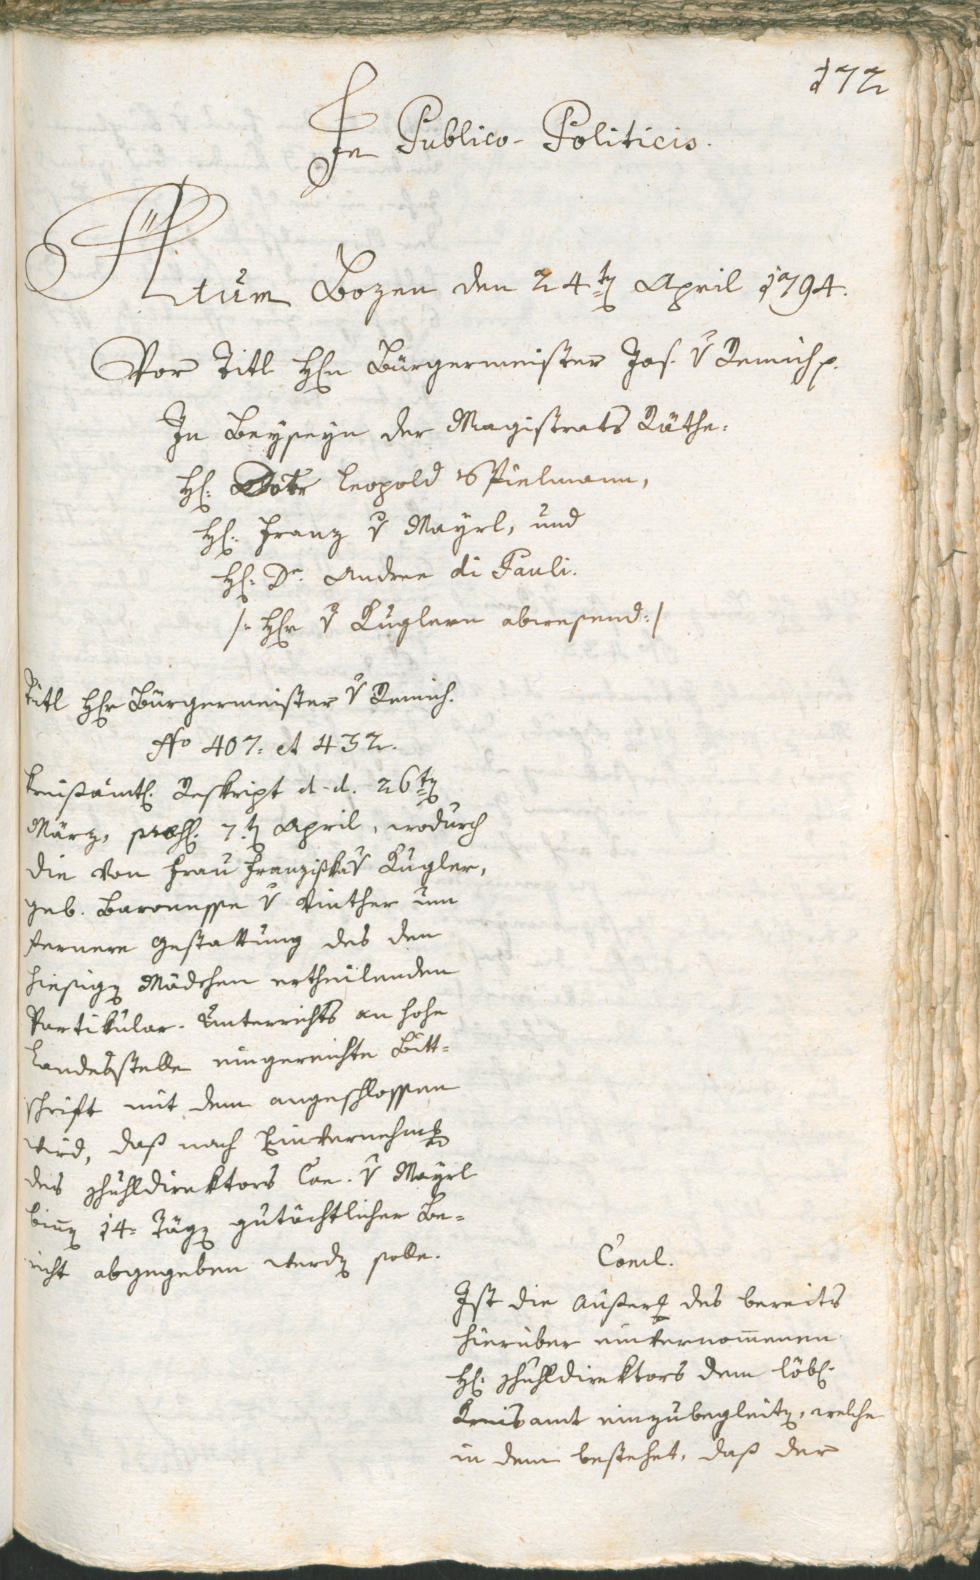 172
In Publico-Politicis.
Actum Bozen den 24ten April 1794.
Vor Titl Hrn Bürgermeister Jos. v Remich p.
In Beyseyn der Magistrats Räthe:
H: Leopold v Spielmann,
H: Franz v Mayrl, und
H: Dr. Andree di Pauli.
/: Herr v Kuglern abwesend :/
Titl Herr Bürgermeister v Remich.
No 407: et 432.
Kreisämtl. Reskript d. d. 26ten
März, praes: 7ten April, wodurch
die von Frau Franziska v Kugler,
geb. Baronesse v Vinther um
fernere Gestattung des den
hiesigen Mädchen ertheilenden
Partikular-Unterrichts an hohe
Landesstelle eingereichte Bitt-
schrift mit dem angeschlossen
wird, daß nach Einvernehmung
des Schuhldirektors Can. v Mayrl
binnen 14- Tägen gutächtlicher Be-
richt abgegeben werden solle.
Concl.
Ist die Äußerung des bereits
hierüber einvernommenen
H: Schuhldirektors dem löbl.
Kreisamt einzubegleiten, welche
in dem bestehet, daß der